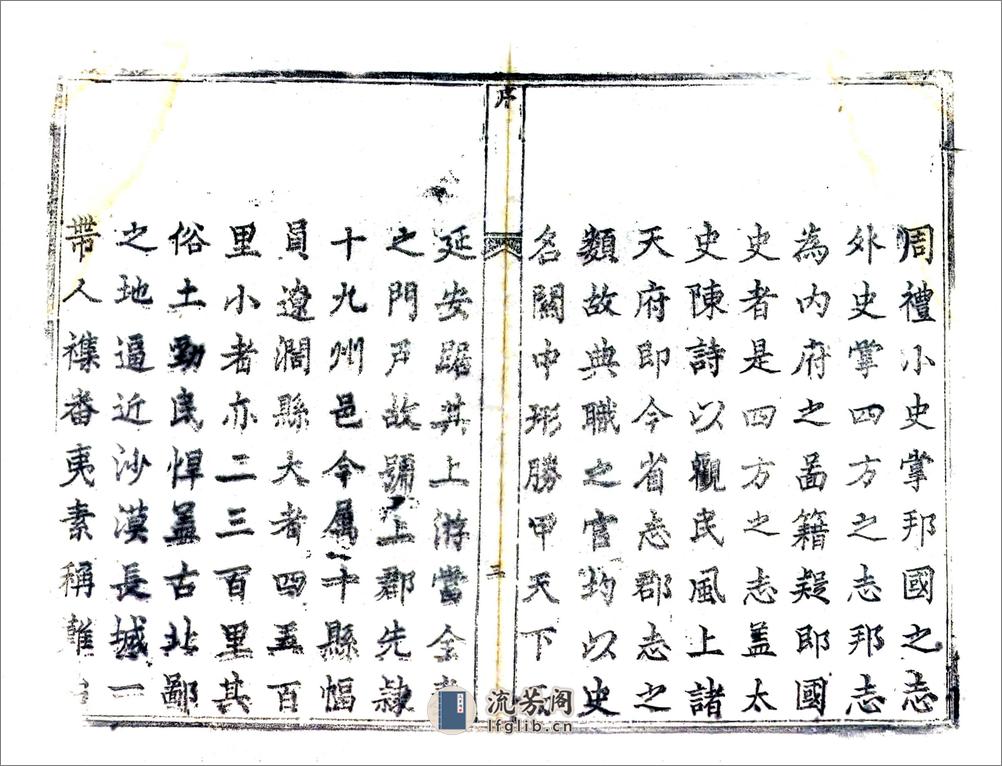 周禮小史掌邦國之志
外史掌四方之志邦志
為內府之啚籍疑即國
史者是四方之志盖太
史陳詩以觀民風上諸
天府即今省志郡志之
類故典職之官均以史
名關中形勝甲天下
序
三
延安踞其上游當全
之門戶故號上郡先隸
十九州邑今属十縣幅
員遼濶縣大者四五百
里小者亦二三百里其
俗土勁民悍盖古北鄙
之地逼近沙漠長城一
帶人襍番夷素稱難
流芳阁
lfglib.cn